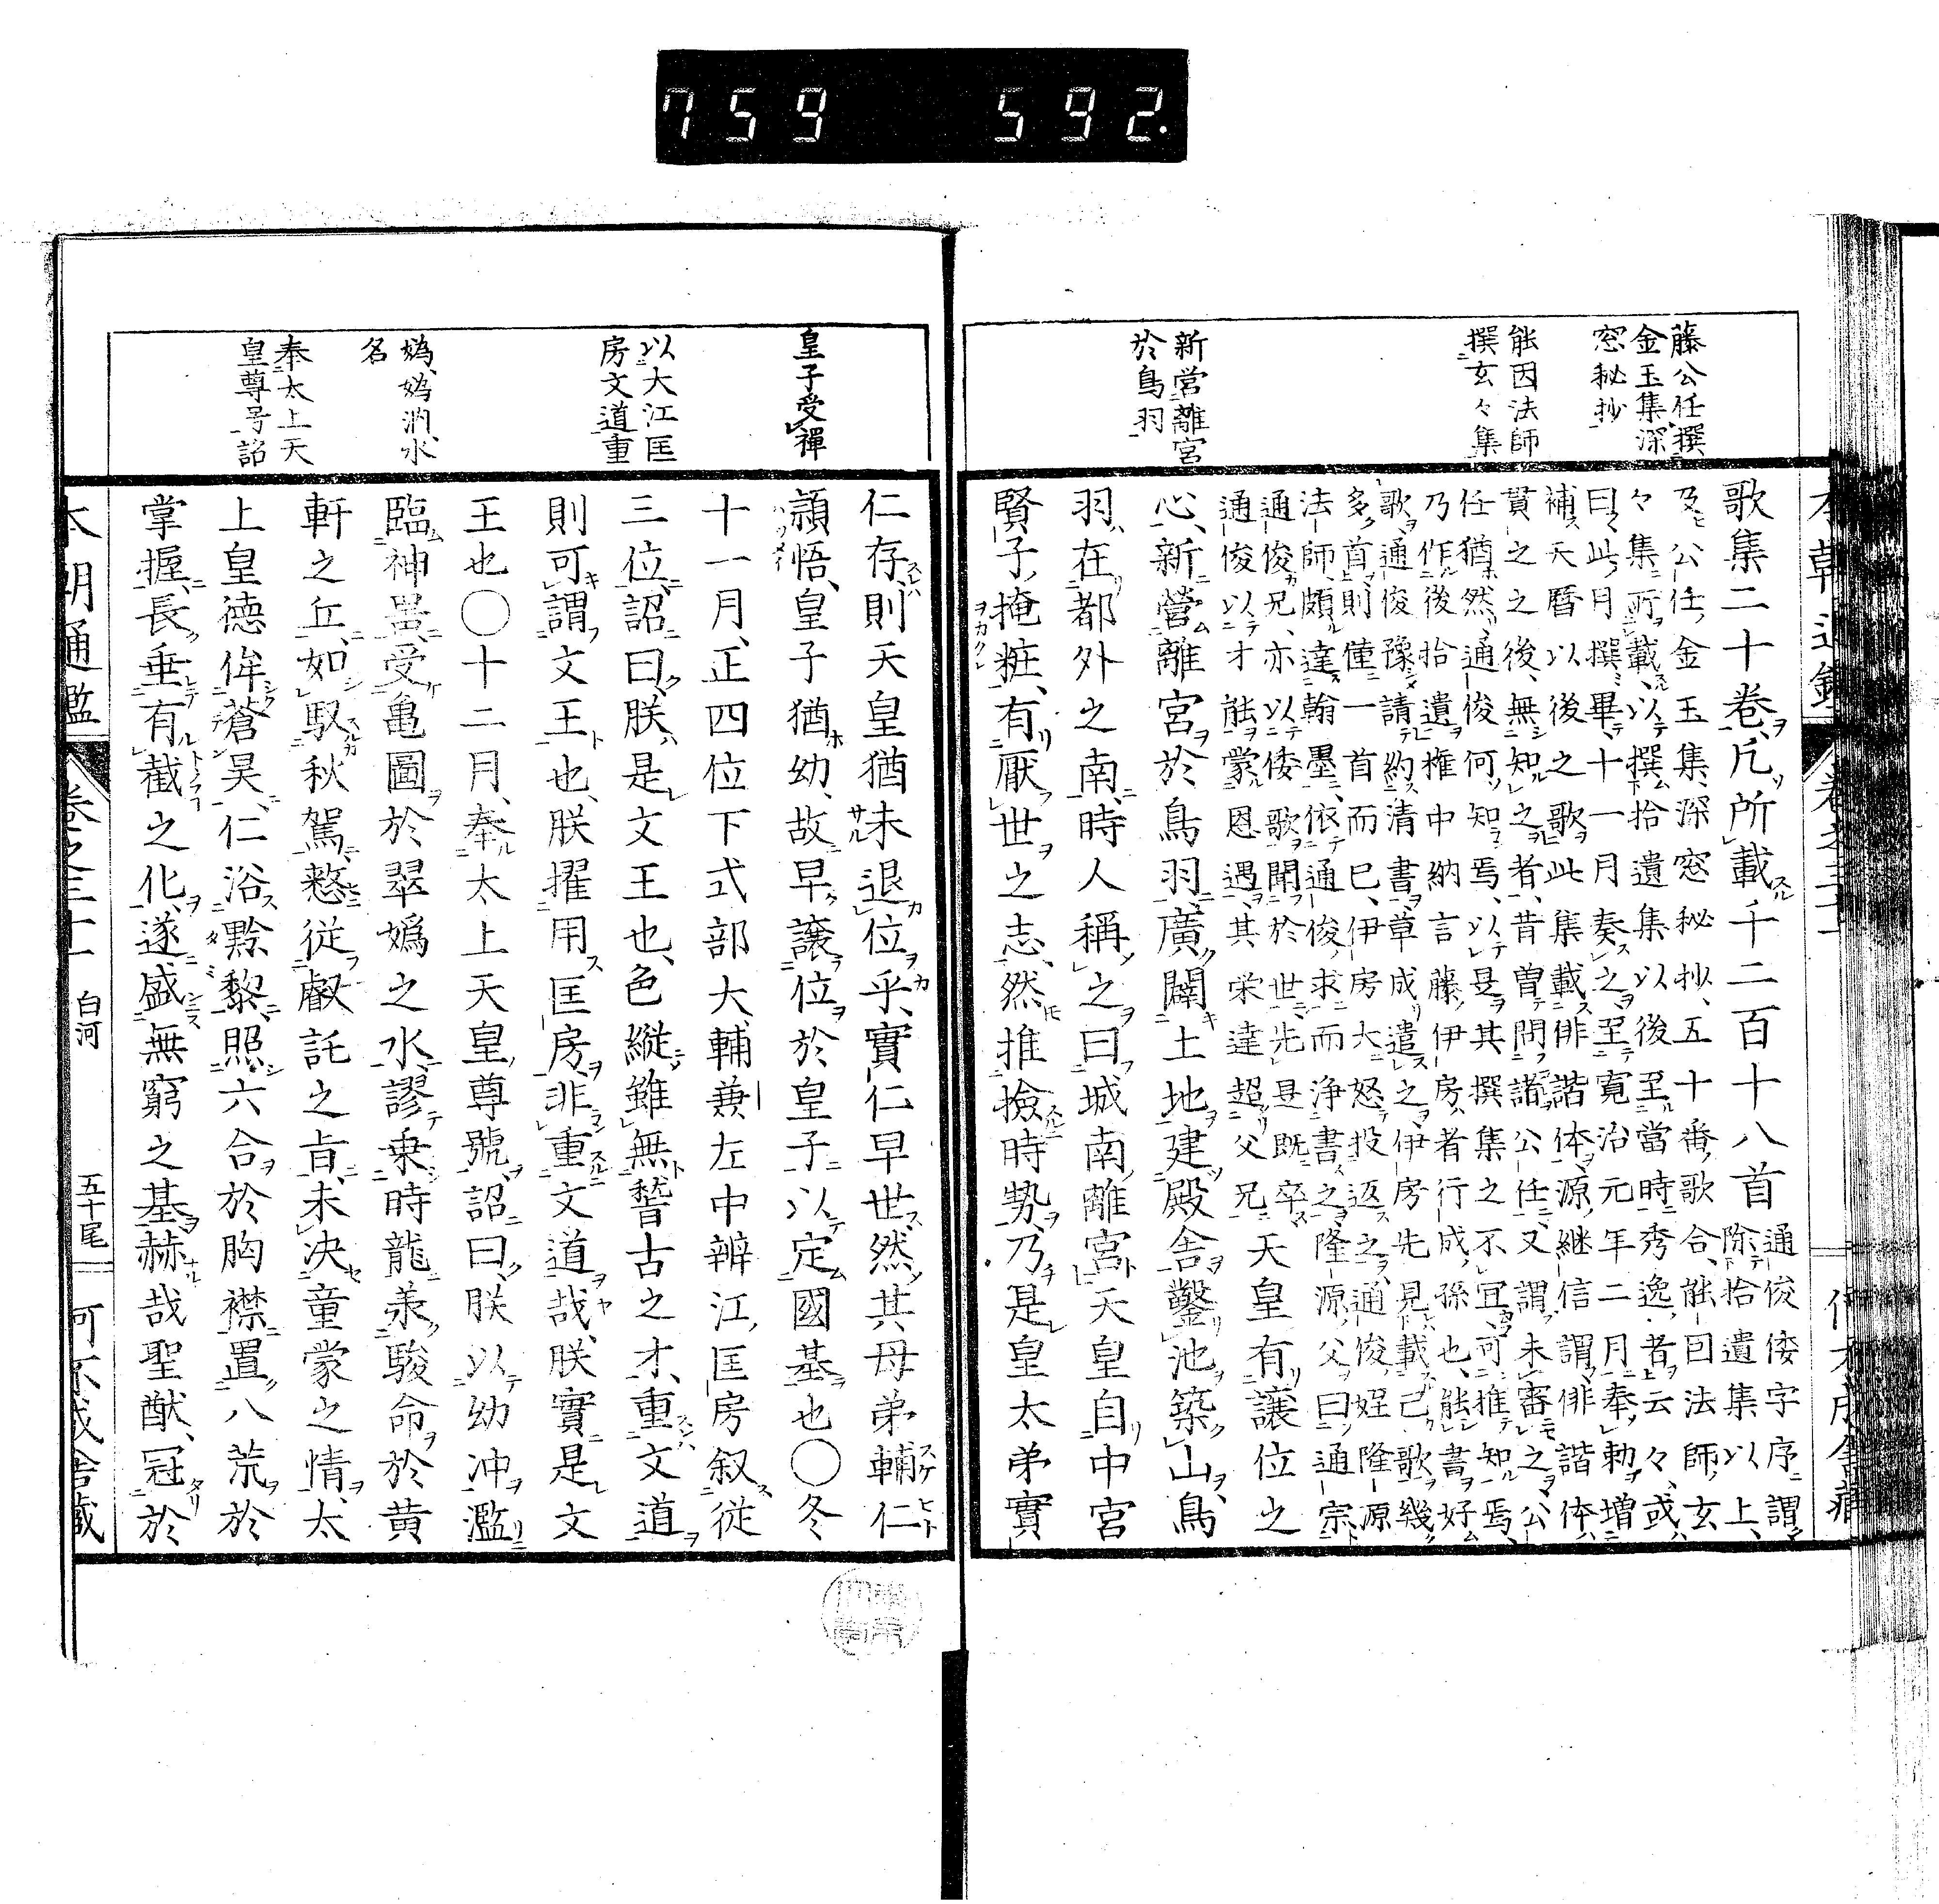 759 592.
藤公任撰
金玉集深
窓秘抄
能因法師
撰玄々集
新営離宮
於鳥羽
歌集二十巻、凡所載千二百十八首
通俊倭字序謂
除拾遺集以上、
及公任金玉集、深窓秘抄、五十番歌合、能因法師玄
々集所載、以撰拾遺集以後至當時秀逸者云々、或
曰、此月撰畢、十一月奏之、至寛治元年二月奉勅増
補天暦以後之歌、此集載俳諧体、源継信謂、俳諧体
貫之之後、無知之者、昔曽問諸公任、又謂未審之、公
任猶然、通俊何知焉、以是其撰集之不宜、可推知焉、
乃作後拾遺、権中納言藤伊房者行成孫也、能書好
歌、通俊豫請約清書、草成遣之、伊房先見載己歌幾
多首、則僅一首而已、伊房大怒投返之、通俊姪隆源
法師、頗達翰墨、依通俊求而浄書之、隆源父曰通宗、
通俊兄、亦以倭歌聞於世、先是既卒、
通俊以才能蒙恩遇、其栄達超父兄、
天皇有譲位之
心、新営離宮於鳥羽、廣闢土地、建殿舎、鑿池築山、鳥
羽在都外之南、時人稱之曰城南離宮、天皇自中宮
賢子掩粧、有厭世之志、然推撿時㔟、乃是皇太弟實
皇子受禪
以大江匡
房文道重
嬀、嬀汭、水
名
奉太上天
皇尊号詔
仁存、則天皇猶未退位乎、實仁早世、然其母弟輔仁
頴悟、皇子猶幼、故早譲位於皇子、以定國基也〇冬
十一月、正四位下式部大輔兼左中辨江匡房叙従
三位、詔曰、朕是文王也、色縦雖無誓古之才、重文道
則可謂文王也、朕擢用匡房、非重文道哉、朕實是文
王也〇十二月、奉太上天皇尊號、詔曰、朕以幼冲濫
臨神噐、受亀圖於翠嬀之水、謬乗時龍、羕駿命於黄
軒之丘、如馭秋駕、憗従叡託之旨、未決童蒙之情、太
上皇徳侔蒼昊、仁浴黔黎、照六合於胸襟、置八荒於
掌握、長垂有截之化、遂盛無窮之基、赫哉聖猷、冠於
本朝通鑑 巻之三十一 白河 五十尾